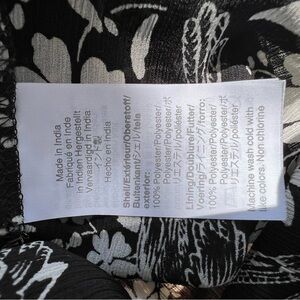 Made in India
Fabriqué en Inde
In Indien Hergestellt
Vervaardigd in India
インド製
Hecho en India
Shell/Extérieur/Oberstoff/
Buitenkant/シェル/tela
exterior:
100% Polyester/Polyester/
Polyester/Polyester/ポ
リエステル/poliéster
Lining/Doublure/Futter/
Voering/ライニング/forro:
100% Polyester/Polyester/
Polyester/Polyester/ポ
リエステル/poliéster
Machine wash cold with
like colors. Non chlorine